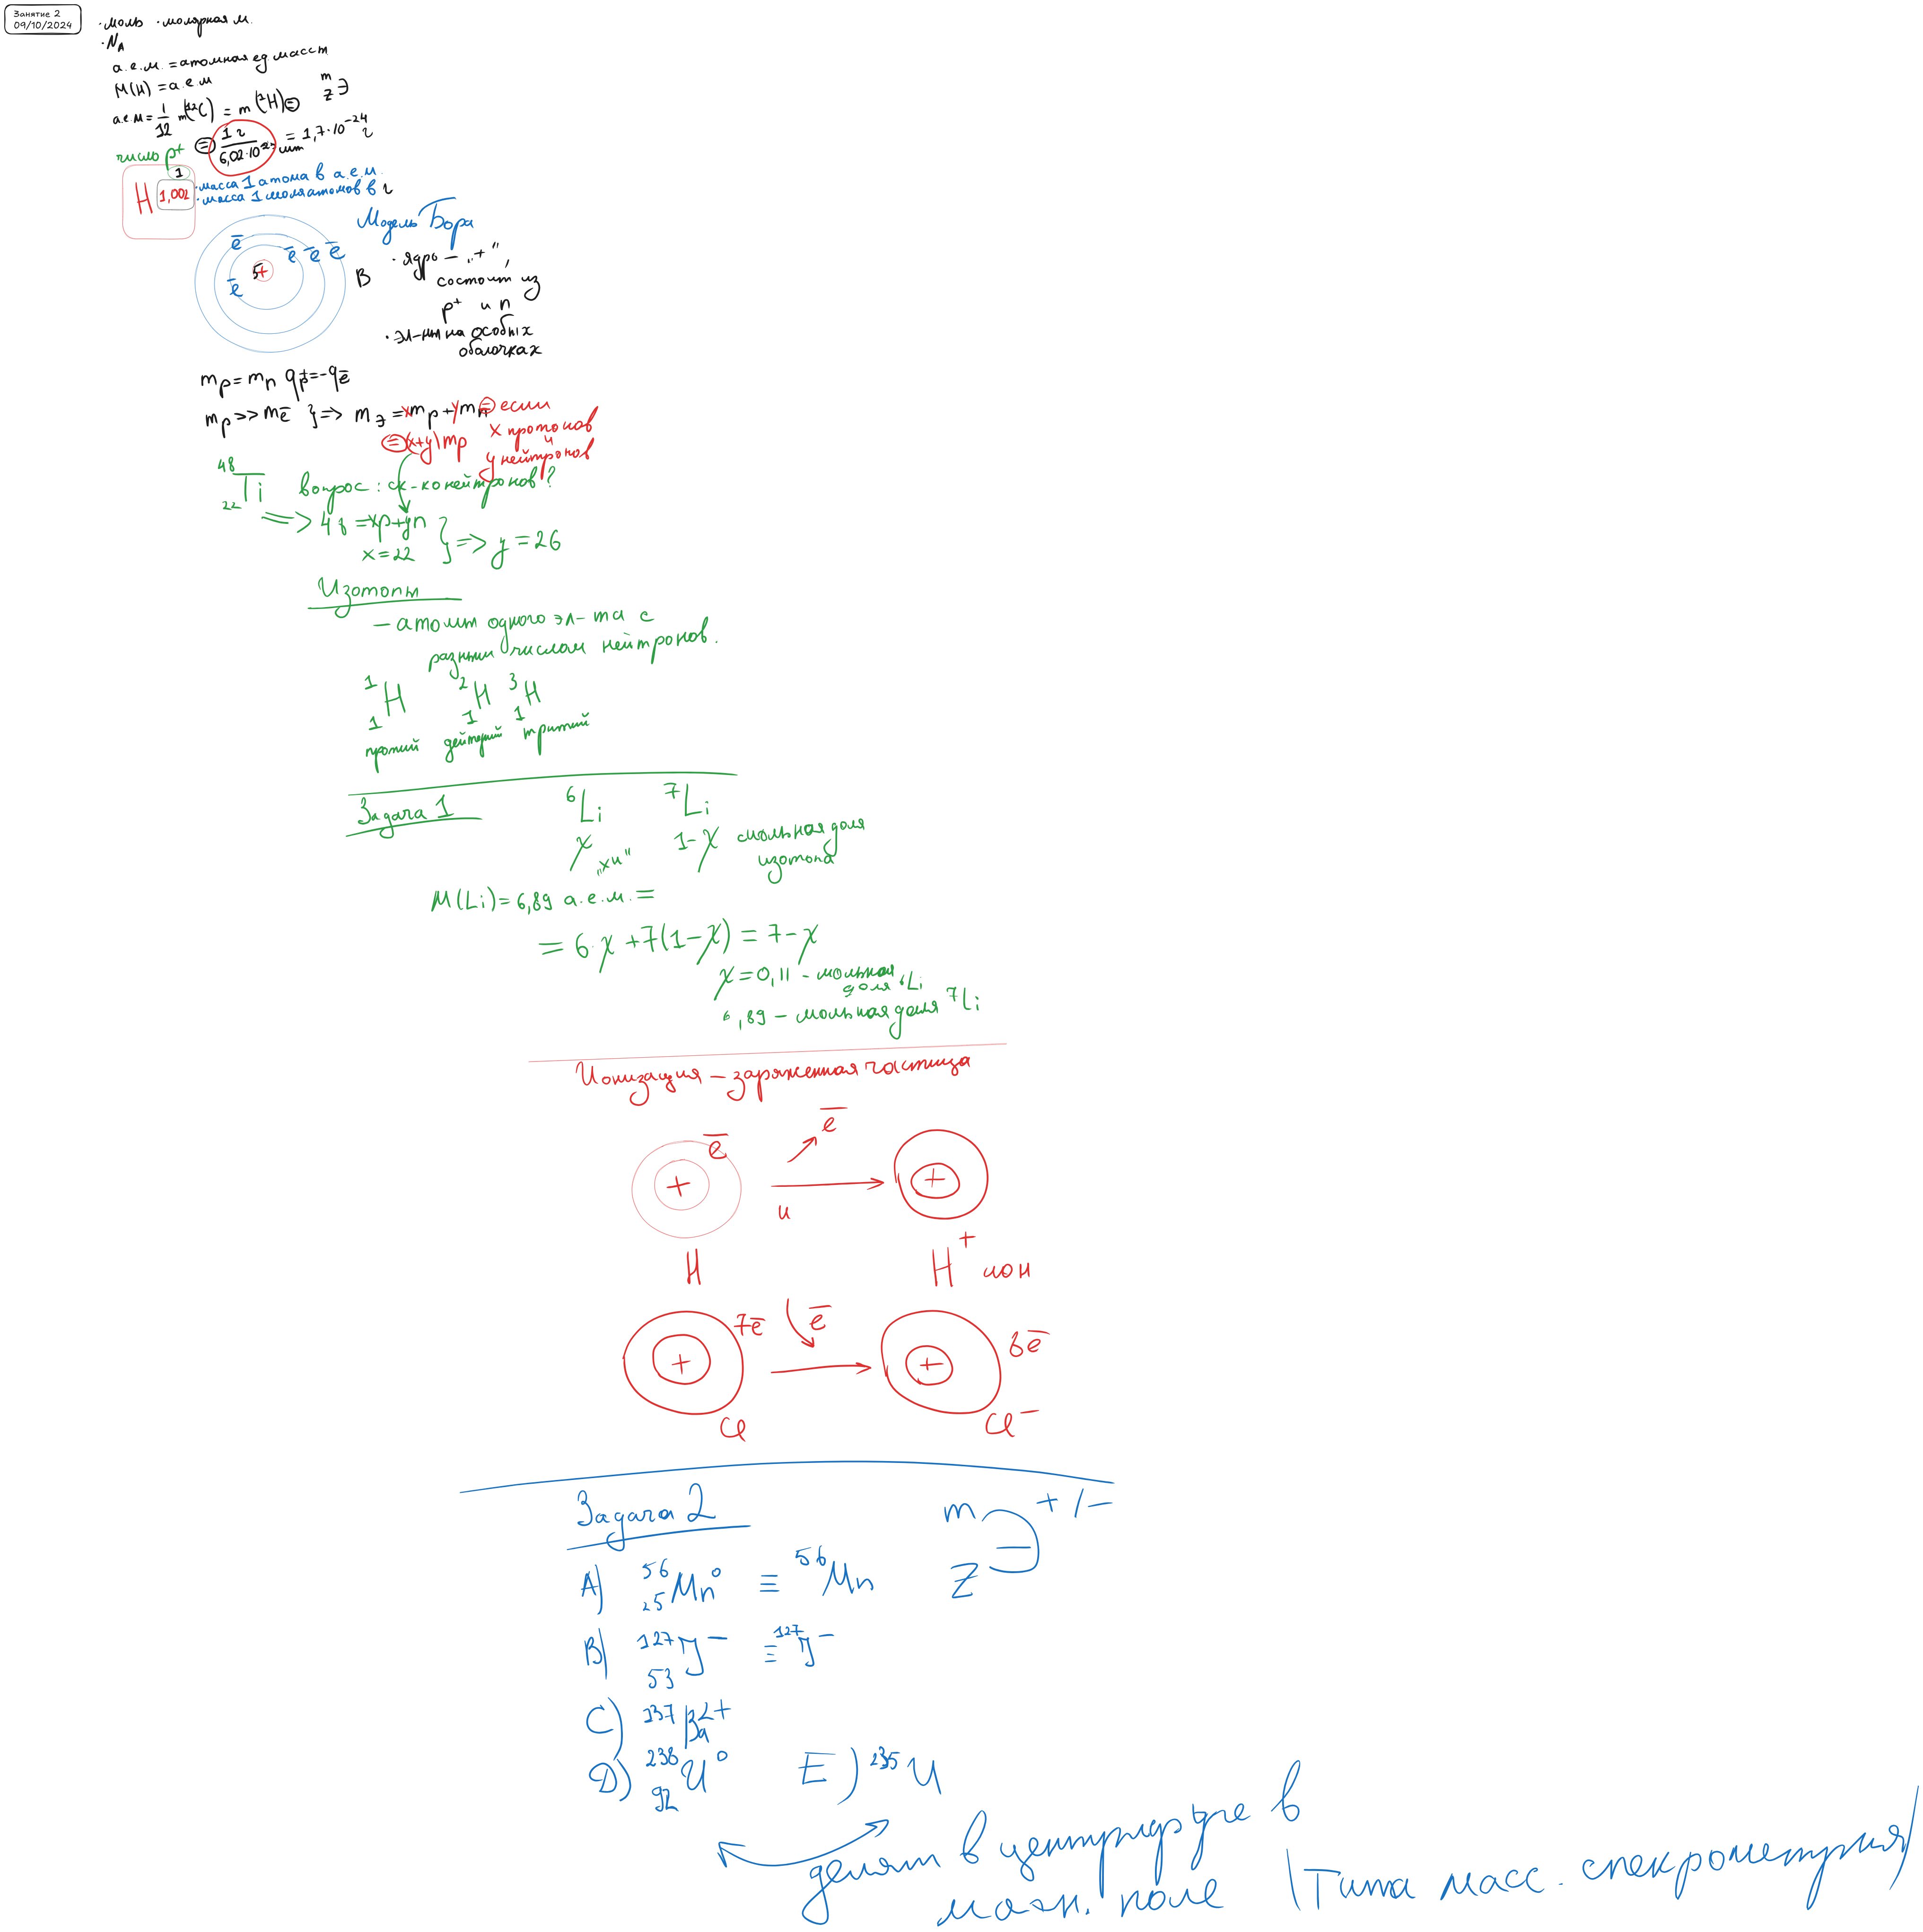 Занятие 2
09/10/2024
·моль ·молярная м.
·N_A
а.е.м. = атомная ед масст
M(H) = а.е.м
m Z Э
а.е.м = 1/12 m(¹²C) = m(¹H) =
= 1 г / 6,02·10²³ шт = 1,7·10⁻²⁴ г
число p⁺
1
H 1,002
·масса 1 атома в а.е.м.
·масса 1 моля атомов в г
Модель Бора
ē ē ē ē ē
5+
B
· ядро – „+",
состоит из
p⁺ и n
· эл-нты на особых
оболочках
m_p = m_n q_p⁺ = -q_ē
m_p >> m_ē } => m_Э = x m_p + y m_n = если
x протонов
и
y нейтронов
= (x+y) m_p
⁴⁸₂₂Ti вопрос: ск-ко нейтронов?
=> 48 = xp + yn
x = 22 } => y = 26
Изотопы
– атомы одного эл-та с
разным числом нейтронов.
¹₁H ²₁H ³₁H
протий дейтерий тритий
Задача 1
⁶Li ⁷Li
χ 1-χ мольная доля
„хи" изотопа
M(Li) = 6,89 а.е.м. =
= 6·χ + 7(1-χ) = 7-χ
χ = 0,11 – мольная
доля ⁶Li
⁶,89 – мольная доля ⁷Li
Ионизация – заряженная частица
ē ē
+ и +
H H⁺ ион
7ē ē 8ē
+ +
Cl Cl⁻
Задача 2
m Z Э +/-
A) ⁵⁶₂₅Mn⁰ ≡ ⁵⁶Mn
B) ¹²⁷₅₃J⁻ ≡ ¹²⁷J⁻
C) ¹³⁷Ba²⁺
D) ²³⁸₉₂U⁰ E) ²³⁵U
делят в центрифуге в
магн. поле (Типа масс. спекрометрия)